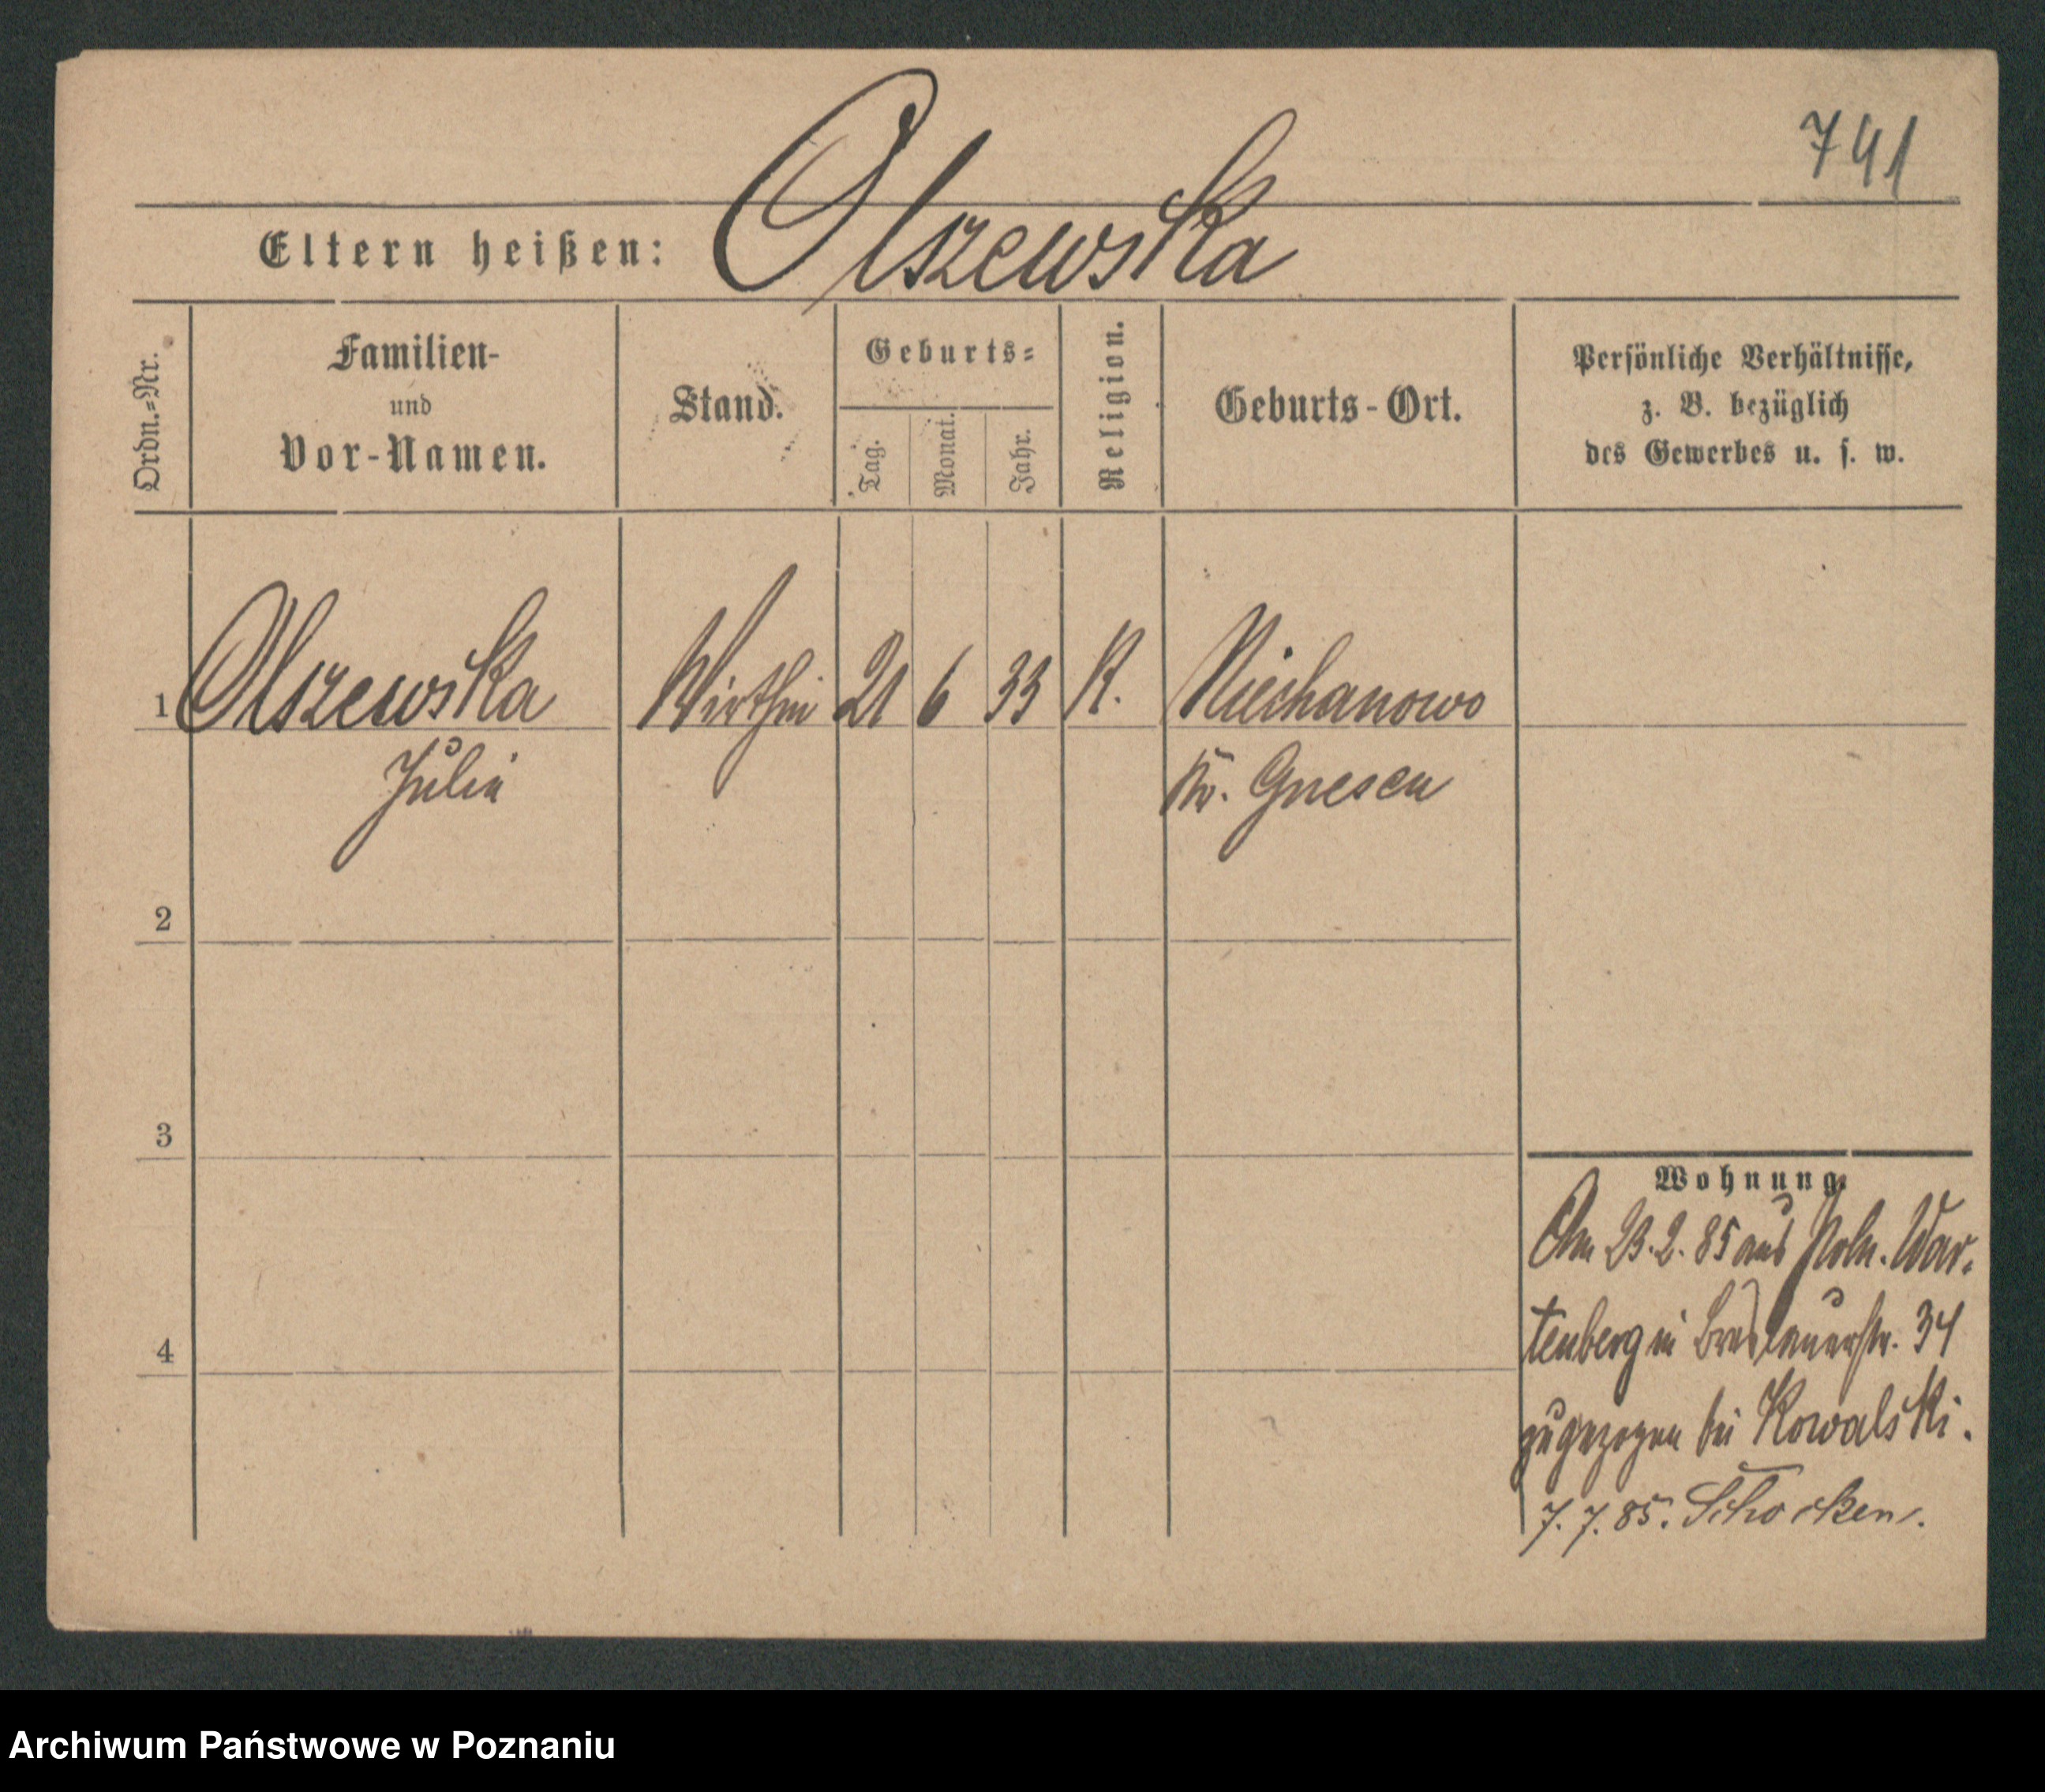 741
Olszewska
Eltern heißen:
Ordn.-Nr.
Familien-
und
Vor-Namen.
Stand.
Geburts-
Tag.
Monat.
Jahr.
Religion.
Geburts-Ort.
Persönliche Verhältnisse,
z. B. bezüglich
des Gewerbes u. s. w.
1 Olszewska Wirthin 21 6 33 K. Niechanowo
Julia Kr. Gnesen
2
3
4
Wohnung.
Am 23.2.85 aus Poln. War-
tenberg in Breslauerstr. 34
zugezogen bei Kowalski.
7.7.85. Schocken.
Archiwum Państwowe w Poznaniu